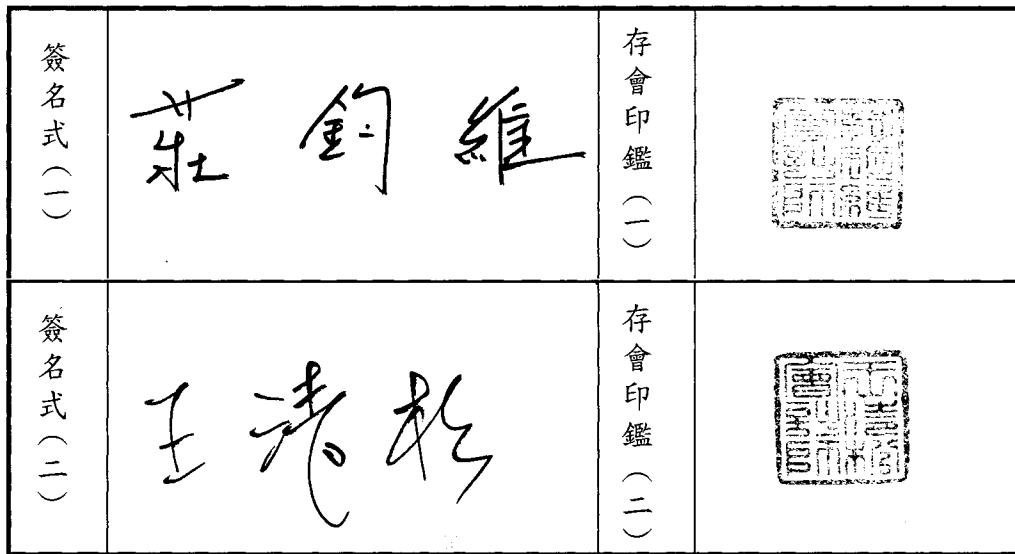 簽名式（一）
莊鈞維
存會印鑑（一）
簽名式（二）
王清松
存會印鑑（二）